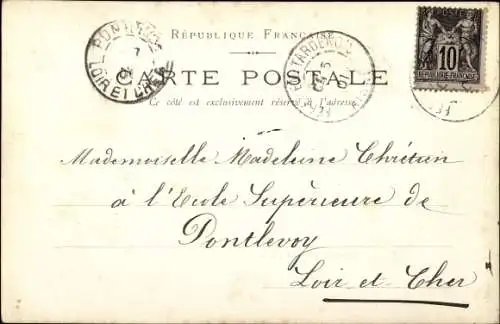 RÉPUBLIQUE FRANÇAISE
CARTE POSTALE
Ce côté est exclusivement réservé à l'adresse
LOIR ET CHER
TARDENOIS
10
REPUBLIQUE FRANÇAISE
Mademoiselle Madeleine Chrétien
à l'Ecole Supérieure de
Pontlevoy
Loir et Cher